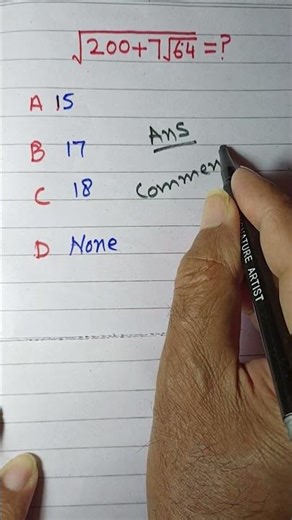 √200+7√64=?
A 15
B 17
C 18
D None
Ans
Commen
NATURE ARTIST